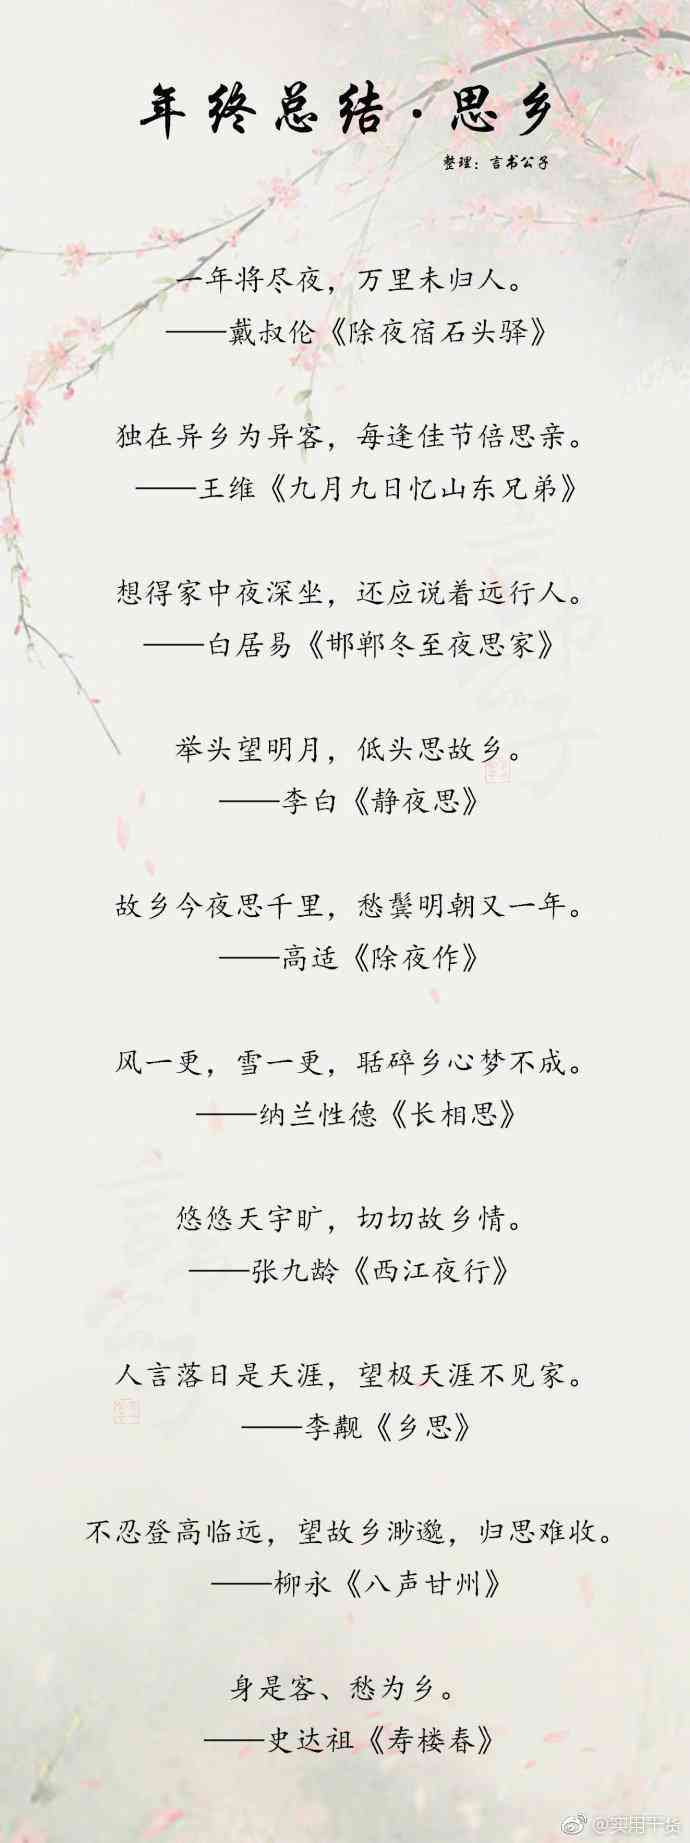 年终总结·思乡
整理：言书公子
一年将尽夜，万里未归人。
——戴叔伦《除夜宿石头驿》
独在异乡为异客，每逢佳节倍思亲。
——王维《九月九日忆山东兄弟》
想得家中夜深坐，还应说着远行人。
——白居易《邯郸冬至夜思家》
举头望明月，低头思故乡。
——李白《静夜思》
故乡今夜思千里，愁鬓明朝又一年。
——高适《除夜作》
风一更，雪一更，聒碎乡心梦不成。
——纳兰性德《长相思》
悠悠天宇旷，切切故乡情。
——张九龄《西江夜行》
人言落日是天涯，望极天涯不见家。
——李觏《乡思》
不忍登高临远，望故乡渺邈，归思难收。
——柳永《八声甘州》
身是客、愁为乡。
——史达祖《寿楼春》
@实用干货